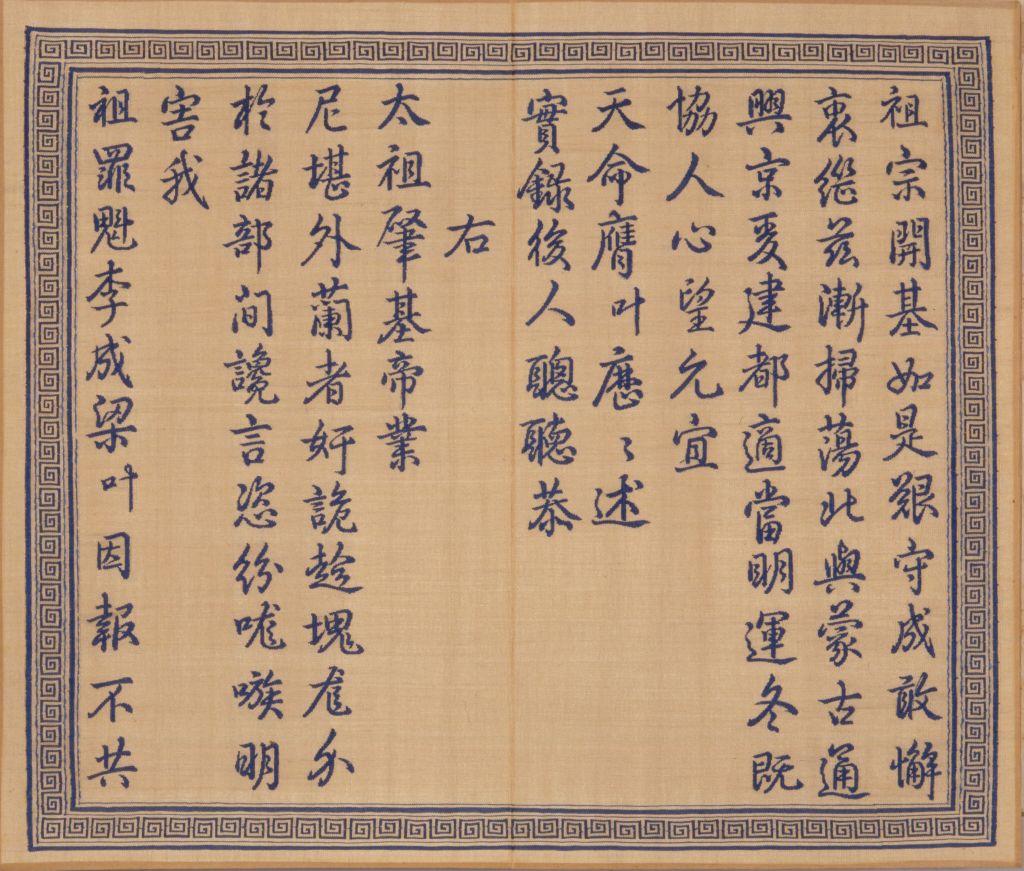 祖宗開基如是艱守成敢懈
衷繼茲漸掃蕩北與蒙古通
興京爰建都適當明運冬既
協人心望允宜
天命膺叶歷〻述
實錄後人聰聽恭
右
太祖肇基帝業
尼堪外蘭者奸詭塊尨介
於諸部間讒言恣紛哤嗾明
害我
祖罪魁李成梁叶因報不共